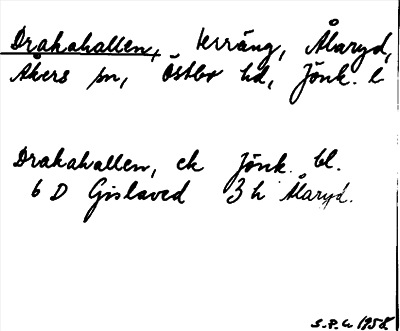 Drakahallen, terräng, Ålaryd,
Åkers sn, Östbo hd, Jönk. l
Drakahallen, ek Jönk. bl.
6 D Gislaved 3 h Ålaryd.
S.P.G 1958